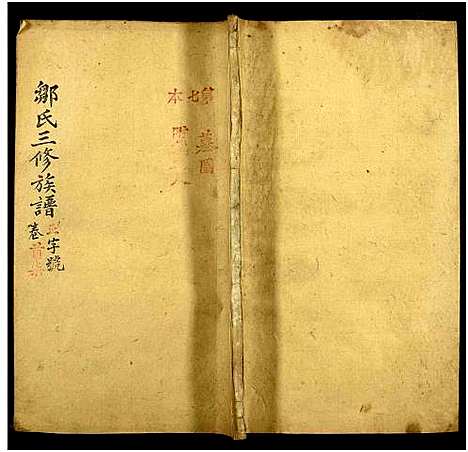 鄒氏三修族譜
字號
卷首
第七本
墓圖